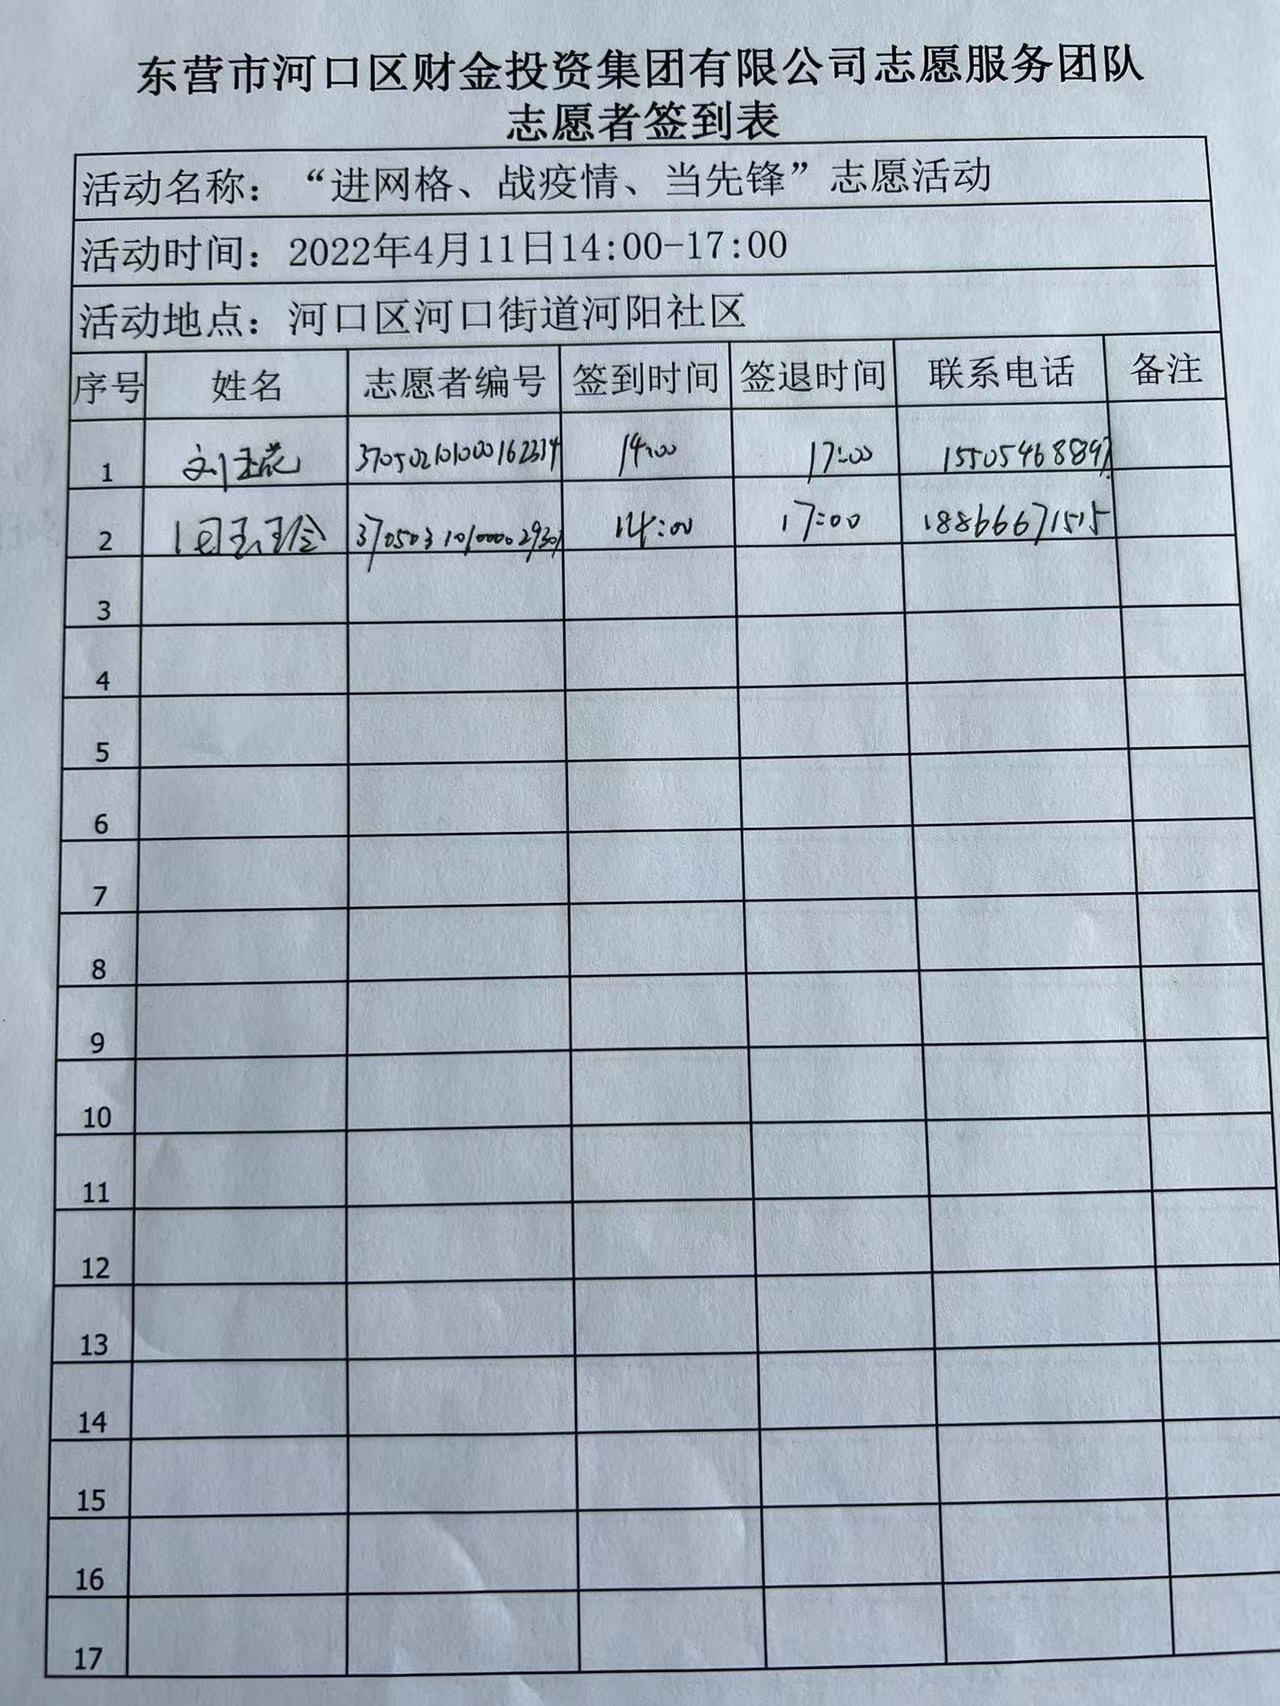 东营市河口区财金投资集团有限公司志愿服务团队
志愿者签到表
活动名称：“进网格、战疫情、当先锋”志愿活动
活动时间：2022年4月11日14:00-17:00
活动地点：河口区河口街道河阳社区
序号 姓名 志愿者编号 签到时间 签退时间 联系电话 备注
1 14:00 17:00
2 14:00 17:00 18866671515
3
4
5
6
7
8
9
10
11
12
13
14
15
16
17